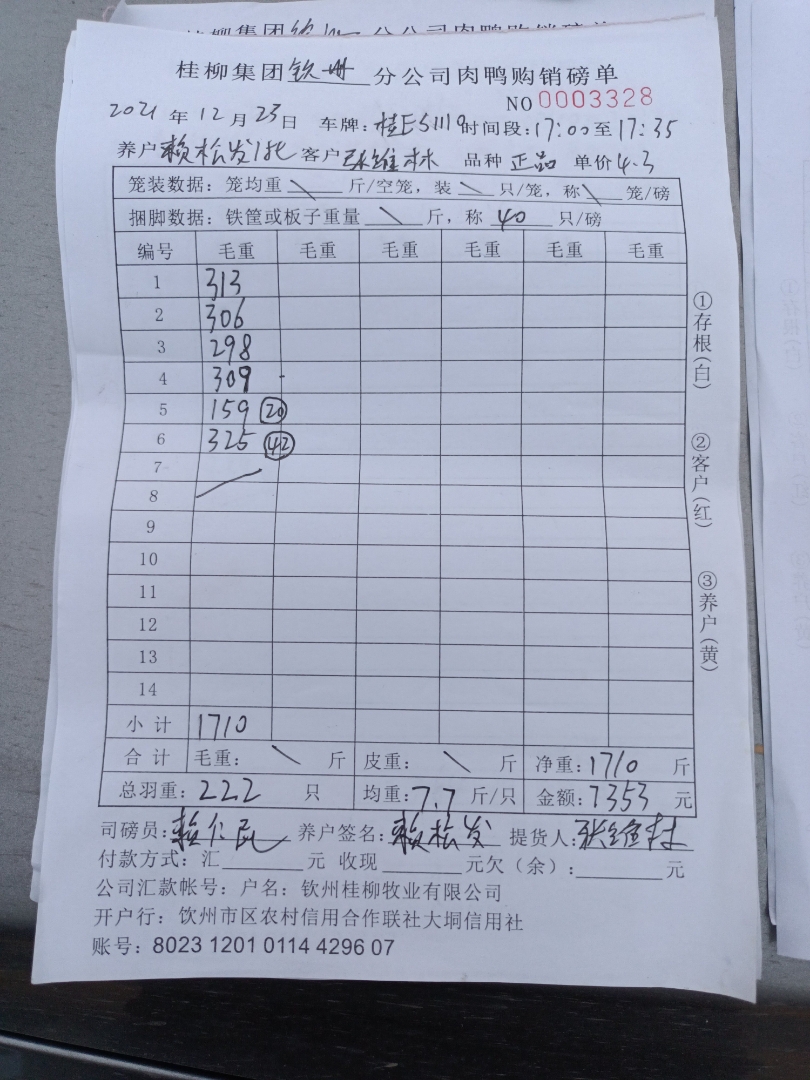 桂柳集团钦州分公司肉鸭购销磅单
NO 0003328
2021年12月23日 车牌:桂ES1119 时间段:17:00至17:35
养户赖松发1批 客户张维林 品种 正品 单价4.3
笼装数据:笼均重\斤/空笼,装\只/笼,称\笼/磅
捆脚数据:铁筐或板子重量\斤,称40只/磅
编号 毛重 毛重 毛重 毛重 毛重 毛重
1 313
2 306
3 298
4 309
5 159 20
6 325 42
7
8
9
10
11
12
13
14
小计 1710
合计 毛重:\斤 皮重:\斤 净重:1710斤
总羽重:222只 均重:7.7斤/只 金额:7353元
司磅员:赖仁民 养户签名:赖松发 提货人:张维林
付款方式:汇______元 收现______元欠(余):______元
公司汇款帐号:户名:钦州桂柳牧业有限公司
开户行:饮州市区农村信用合作联社大垌信用社
账号:8023 1201 0114 4296 07
①存根(白)
②客户(红)
③养户(黄)